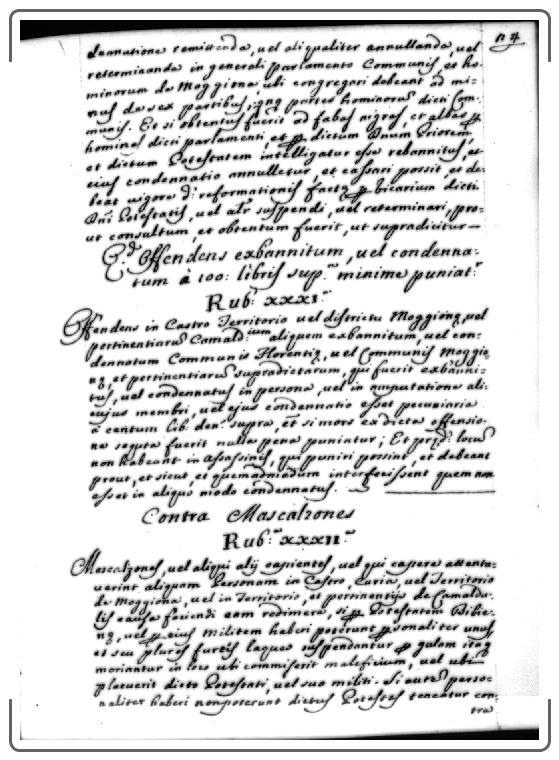 n 4
demnatione remittenda, vel aliqualiter annullanda, vel
reterminanda in generali parlamento Communis et ho-
minorum de Moggiona, ubi congregari debeant ad mi-
nus de sex partibus, qnq partes hominorum dicti Com-
munis. Et si obtentus fuerit ad fabas nigras, et albas p
homines dicti parlamenti, et p dictum Dnum Priorem
et dictum Potestatem intelligatur esse rebannitus, et
eius condemnatio annulletur, et cassari possit, et de-
beat vigore d: reformationis facte p vicarium dicti
Dni Potestatis, vel alr suspendi, vel reterminari, pro-
ut consultum, et obtentum fuerit, ut supradicitur —
Qd Offendens exbannitum, vel condenna-
tum à 100: libris sup.a minime puniat.r
Rub.a XXXI.a
Offendens in Castro Territorio vel districtu Moggione, vel
pertinentiarum Camald:ium aliquem exbannitum, vel con-
dennatum Communis Florentie, vel Communis Moggio
ne, et pertinentiarum supradictarum, qui fuerit exbanni-
tus, vel condennatus in persona, vel in amputatione ali-
cujus membri, vel ejus condennatio esset pecuniaria
a centum lib: den: supra, et si mors ex dicta offensio-
ne sequta fuerit nulla pena puniatur; Et pred: locum
non habeant in Assassinis, qui puniri possint, et debeant
prout, et sicut, et quemadmodum interfecissent quem non
esset in aliquo modo condennatus.
Contra Mascalzones
Rub.a XXXII.a
Mascalzones, vel aliqui alij sapientes, vel qui capere attenta-
verint aliquam Personam in Castro, Curia, vel Territorio
de Moggiona, vel in Territorio, et pertinentijs de Camaldu-
lis causa faciendi eam redimere, si p Potestatem Bibie-
ne, vel p eius Militem haberi poterunt psonaliter unus,
et seu plures furtis laqueo suspendantur p gulam itaq
moriantur in loco ubi commiserit maleficium, vel ubi
placuerit dicto Potestati, vel suo militi. Si autem perso-
naliter haberi non poterunt dictus Potestas teneatur con-
tra